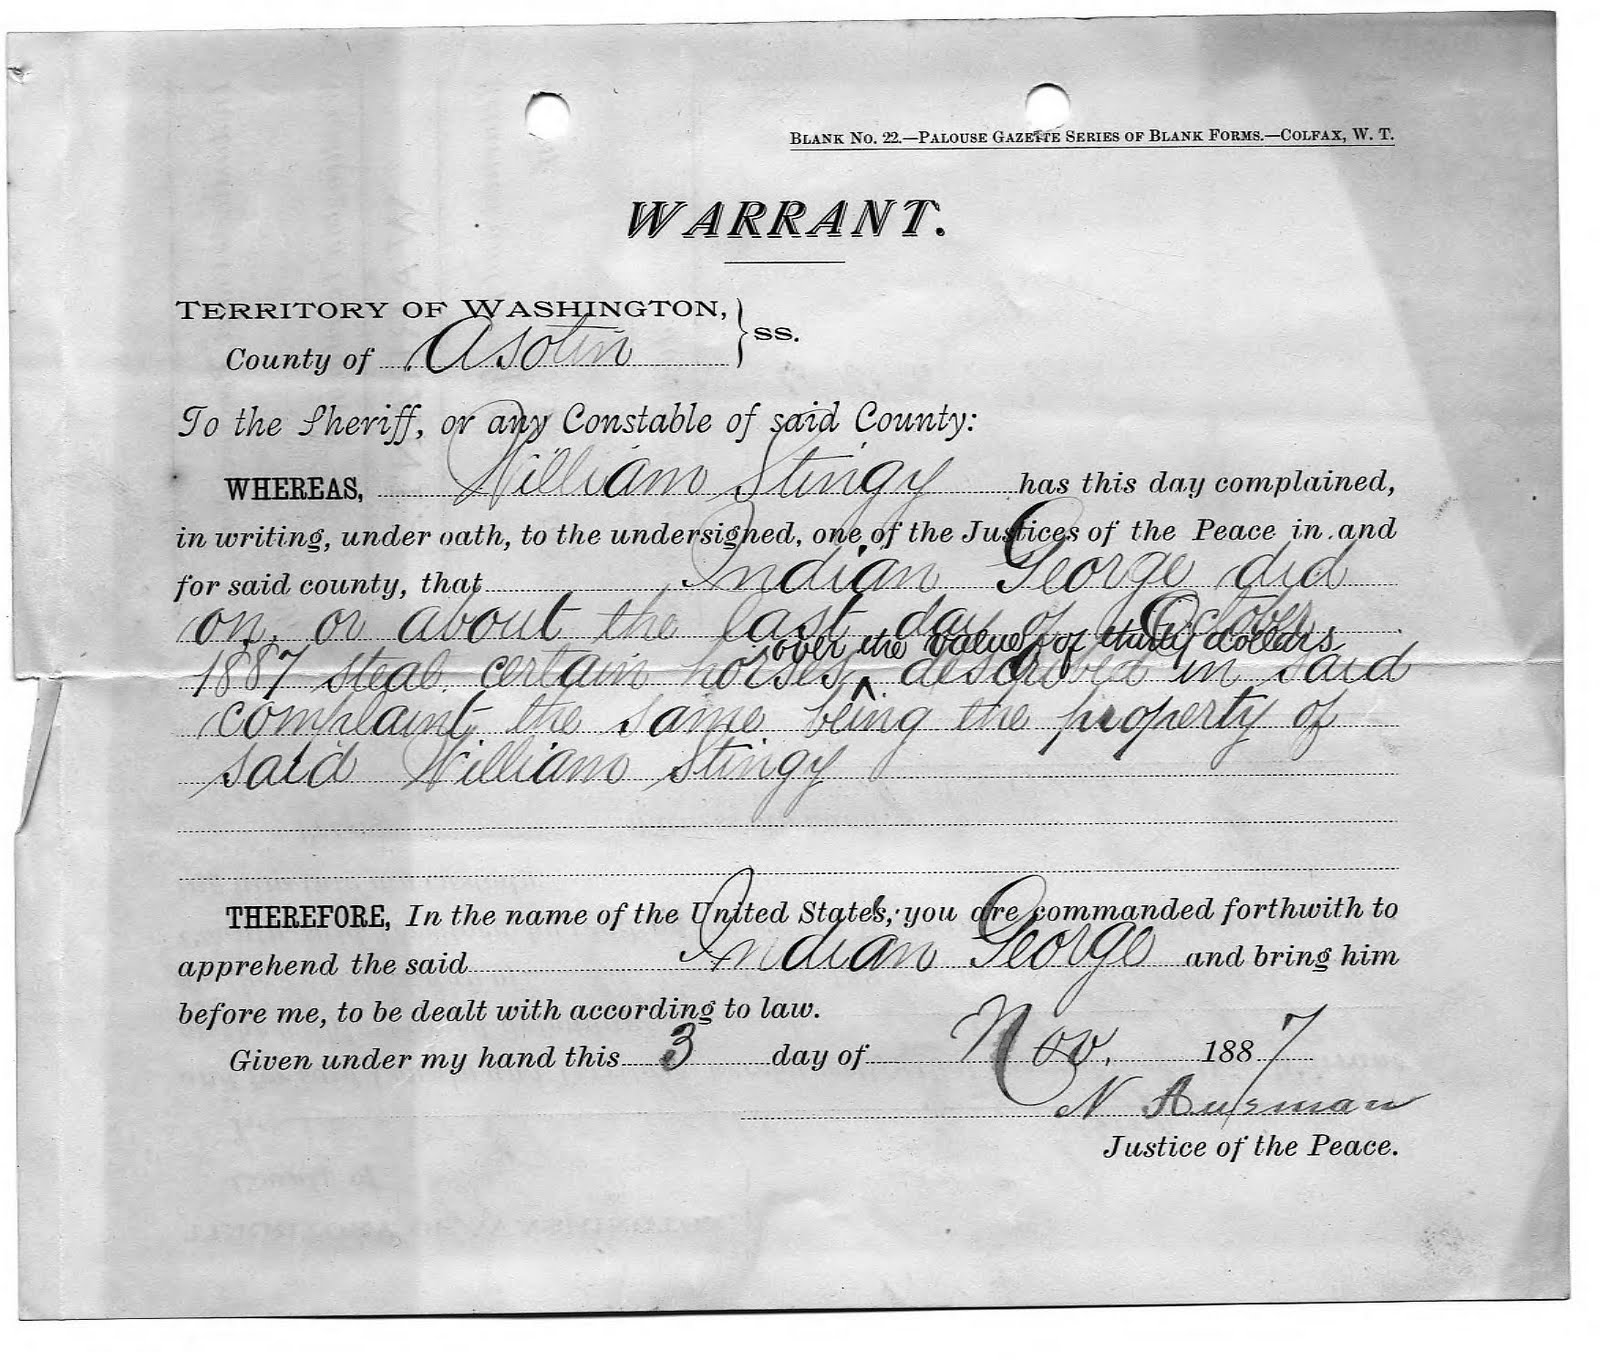 BLANK NO. 22.—PALOUSE GAZETTE SERIES OF BLANK FORMS.—COLFAX, W. T.
WARRANT.
TERRITORY OF WASHINGTON, } ss.
County of Asotin
To the Sheriff, or any Constable of said County:
WHEREAS, William Stingy has this day complained,
in writing, under oath, to the undersigned, one of the Justices of the Peace in and
for said county, that Indian George did
on, or about the last day of October
over the value of thirty dollars
1887 steal certain horses ^ described in said
complaint the same being the property of
said William Stingy
THEREFORE, In the name of the United States, you are commanded forthwith to
apprehend the said Indian George and bring him
before me, to be dealt with according to law.
Given under my hand this 3 day of Nov. 1887
N Ausman
Justice of the Peace.